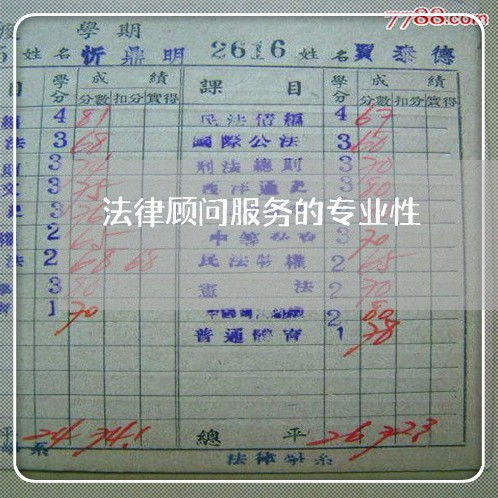 7788.com
學期
姓名 忻鼎明 2616 姓名 賈泰德
目 學分 成績 課目 學分 成績
分數 扣分 實得 分數 扣分 實得
4 81 民法債編 4 67
法 3 68 國際公法 3 60
3 刑法總則 3 70
3 75 西洋通史 3 80
法律顾问服务的专业性
2 65 3 70
法 2 68 68 民法物權 2 65
3 80 憲法 2 70
1 70 2 80
普通體育 1 78
平 24 74.1 總平 26 72.3
系 法律學系